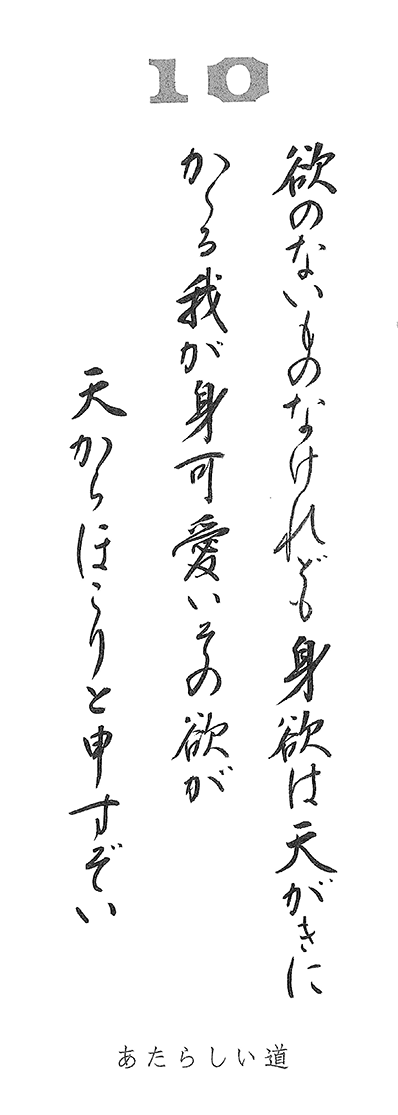 10
欲のないものなけれども身欲は天がきに
かゝる我が身可愛いその欲が
天からほこりと申すぞい
あたらしい道